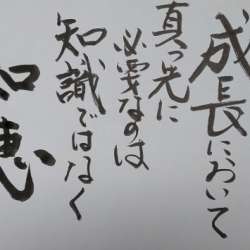 成長において
真っ先に
必要なのは
知識ではなく
知恵